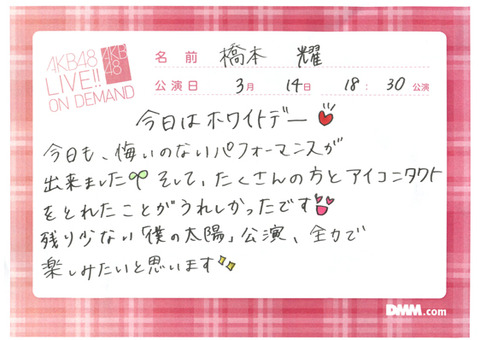 AKB48
LIVE!!
ON DEMAND
AKB
48
名前 橋本 耀
公演日 3月 14日 18:30公演
今日はホワイトデー
今日も、悔いのないパフォーマンスが
出来ました そして、たくさんの方とアイコンタクト
をとれたことがうれしかったです
残り少ない「僕の太陽」公演、全力で
楽しみたいと思います
DMM.com